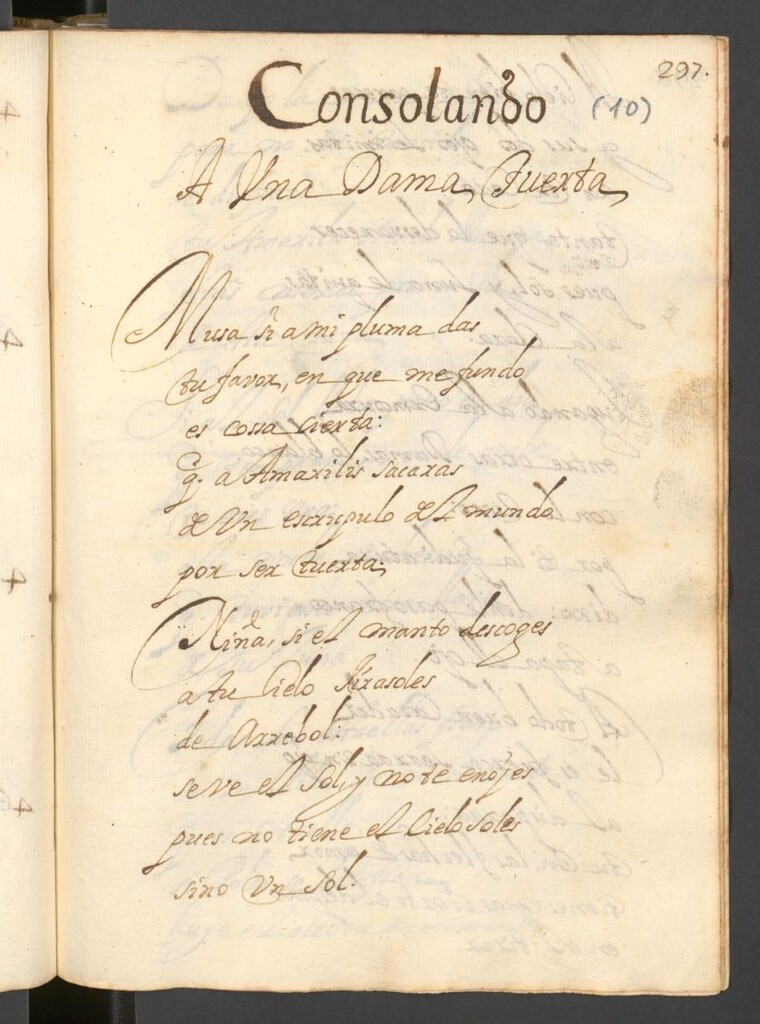 297.
Consolando (10)
A Vna Dama, Tuerta,
Musa si a mi pluma das
tu favor, en que me fundo,
es cossa Cierta:
q. a Amarilis sacaras
de Vn escrupulo del mundo
por ser tuerta;
Niña, si el manto descoges
a tu Cielo Jirasoles
de Arrebol:
se ve el Sol, y no te enojes
pues no tiene el Cielo Soles
sino Vn Sol.